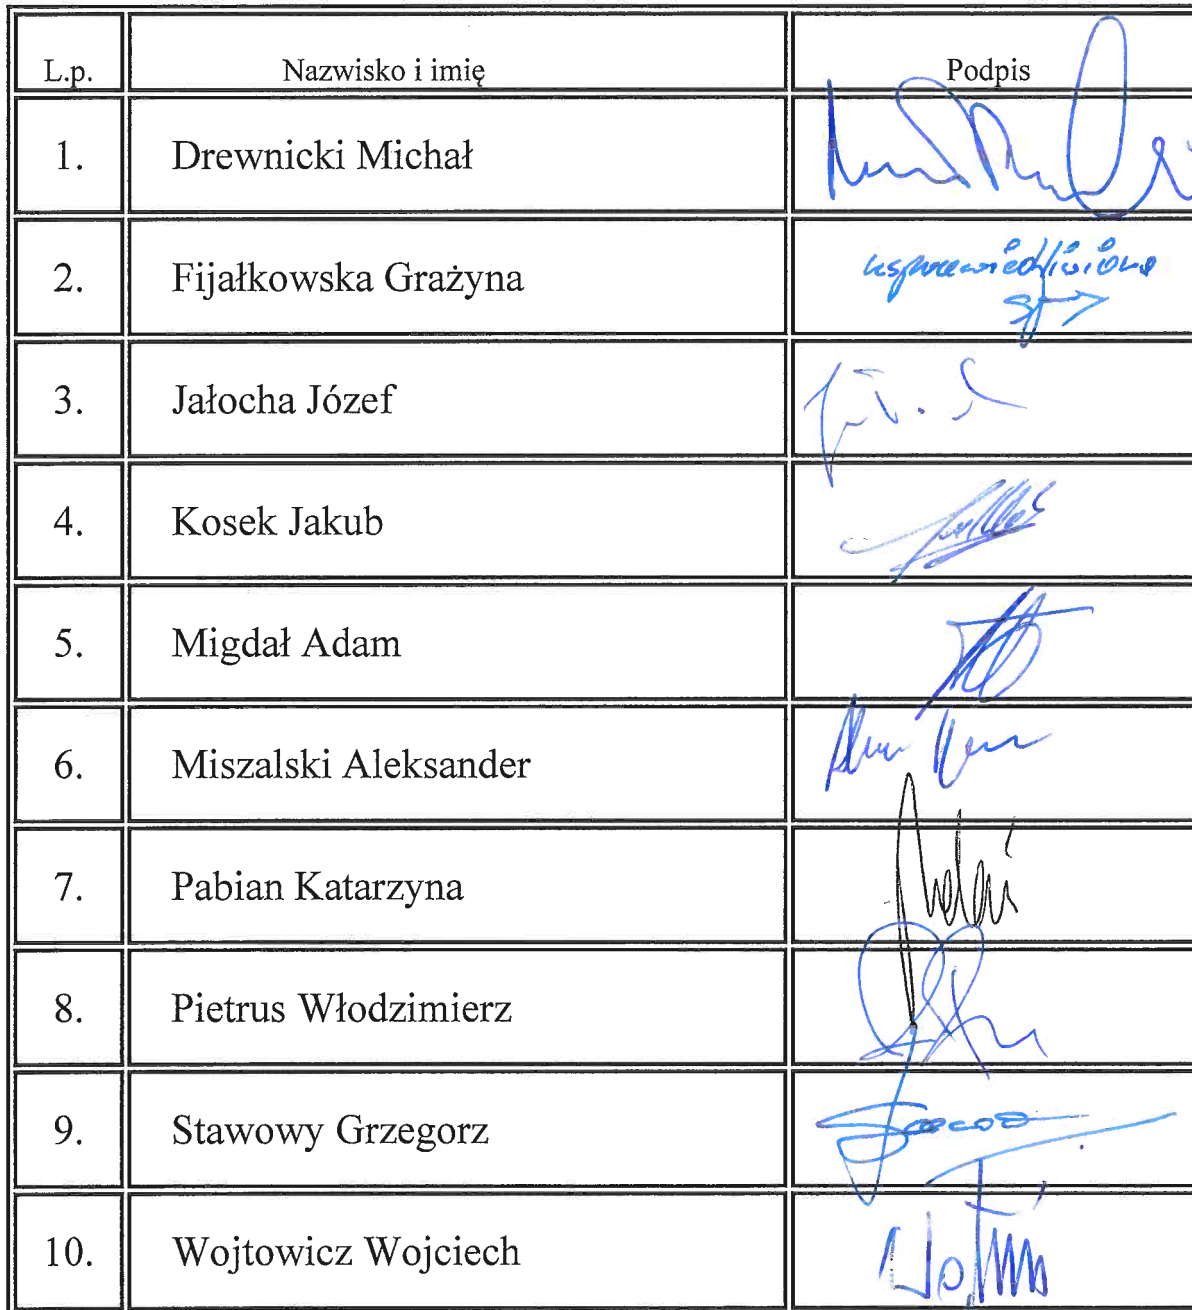 L.p. Nazwisko i imię Podpis
1. Drewnicki Michał
2. Fijałkowska Grażyna usprawiedliwiona
3. Jałocha Józef
4. Kosek Jakub
5. Migdał Adam
6. Miszalski Aleksander
7. Pabian Katarzyna
8. Pietrus Włodzimierz
9. Stawowy Grzegorz
10. Wojtowicz Wojciech